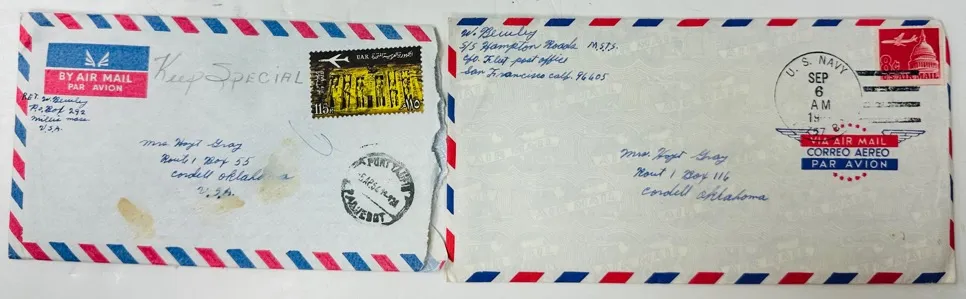 BY AIR MAIL
PAR AVION
Keep Special
UAR
115
١١٥
RET. W. Bewley
P.O. Box 292
Millis mass
U.S.A.
Mrs Hoyt Gray
Rout 1 Box 55
Cordell Oklahoma
U.S.A.
PORT TAUFIQ
PAQUEBOT
W. Bewley
S/S Hampton Roads M.S.T.S.
c/o. Fleet post office
San Francisco calif. 96605
U.S. NAVY
SEP
6
AM
19
8¢
US AIR MAIL
VIA AIR MAIL
CORREO AEREO
PAR AVION
Mrs. Hoyt Gray
Rout 1 Box 116
Cordell Oklahoma